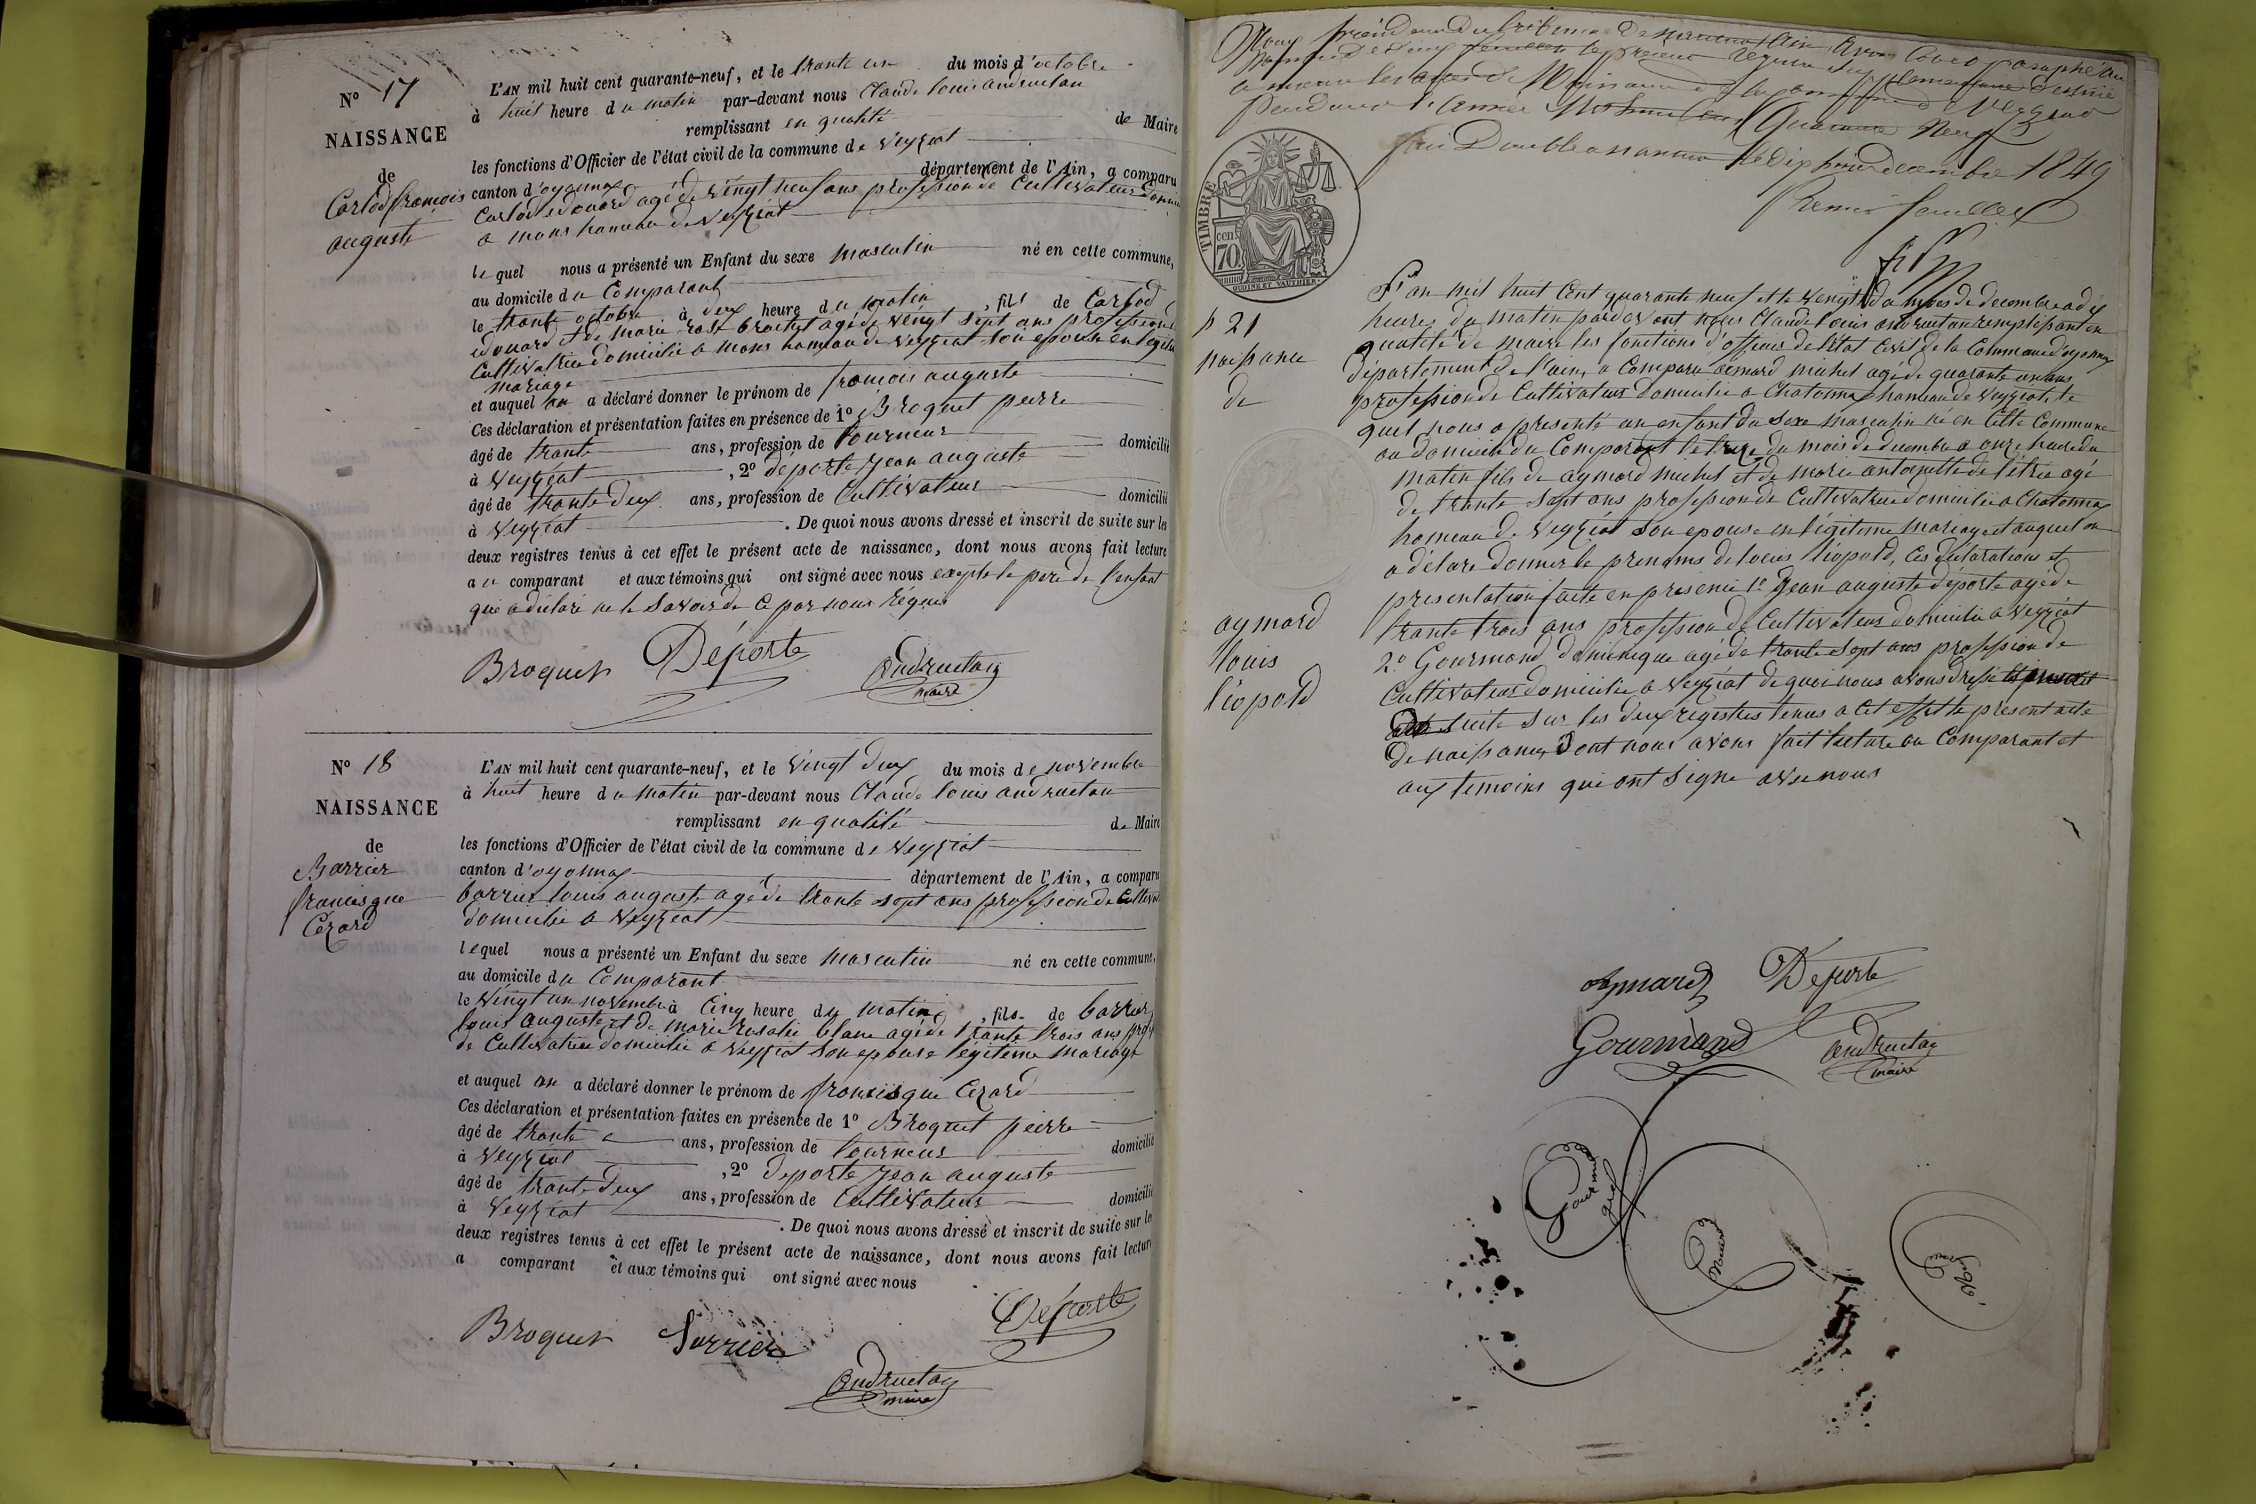 N° 17
NAISSANCE
de
Carlod françois
auguste
L'AN mil huit cent quarante-neuf, et le trante un du mois d'octobre
à huit heure du matin par-devant nous Claude louis andruetan
remplissant en qualité de Maire
les fonctions d'Officier de l'état civil de la commune de Veyziat
canton d'oyonnax département de l'Ain, a comparu
Carlod edouard agé de vingt neuf ans profession de Cultivateur
a mons hameau de Veyziat
lequel nous a présenté un Enfant du sexe masculin né en cette commune,
au domicile du Comparant
le trante octobre à deux heure du matin, fils de Carlod
edouard et de marie rose brochet agé de vingt sept ans profession
Cultivatrice domicilie a mons hameau de Veyziat son epouse en
mariage
et auquel on a déclaré donner le prénom de françois auguste
Ces déclaration et présentation faites en présence de 1° Broquet pierre
âgé de trante ans, profession de tourneur domicilié
à Veyziat, 2° déporte jean auguste
âgé de trante deux ans, profession de Cultivateur domicilié
à Veyziat. De quoi nous avons dressé et inscrit de suite sur les
deux registres tenus à cet effet le présent acte de naissance, dont nous avons fait lecture
au comparant et aux témoins qui ont signé avec nous excepte le pere de l'enfant
qui a déclaré ne le savoir de ce par nous requis
Broquet Déporte andruetan
maire
N° 18
NAISSANCE
de
Barrier
francisque
Cézard
L'AN mil huit cent quarante-neuf, et le vingt deux du mois de novembre
à huit heure du matin par-devant nous Claude louis andruetan
remplissant en qualité de Maire
les fonctions d'Officier de l'état civil de la commune de Veyziat
canton d'oyonnax département de l'Ain, a comparu
barrier louis auguste agé de trante sept ans profession de
domicilie a Veyziat
lequel nous a présenté un Enfant du sexe masculin né en cette commune,
au domicile du Comparant
le vingt un novembre à cinq heure du matin, fils de barrier
louis auguste et de marie rosalie blanc agé de trante trois ans
de Cultivatrice domicilie a Veyziat son epouse légitime mariage
et auquel on a déclaré donner le prénom de francisque Cézard
Ces déclaration et présentation faites en présence de 1° Broquet pierre
âgé de trante ans, profession de tourneur domicilié
à Veyziat, 2° deporte jean auguste
âgé de trante deux ans, profession de Cultivateur domicilié
à Veyziat. De quoi nous avons dressé et inscrit de suite sur le
deux registres tenus à cet effet le présent acte de naissance, dont nous avons fait lecture
a comparant et aux témoins qui ont signé avec nous
Broquet barrier Déporte
andruetan
maire
Nous président du tribunal de
le présent registre
naissance
pendant l'année mil huit cent quarante neuf
fait Double a nantua le dix huit decembre 1849
Premier feuillet
TIMBRE
cen.
70
OUDINE ET VAUTHIER
21
naissance
de
aymard
louis
léopold
L'an mil huit cent quarante neuf et le vingt du mois de decembre a dix
heures du matin par devant nous Claude louis andruetan remplissant en
qualité de maire les fonctions d'officier de l'état civil de la Commune d'oyonnax
département de l'ain, a comparu aymard michel agé de quarante un ans
profession de Cultivateur domicilie a Chatonnax hameau de Veyziat, le
quel nous a presenté un enfant du sexe masculin né en cette Commune
au domicile du Comparant le treize du mois de decembre a onze heure du
matin fils de aymard michel et de marie antoinette de létrée agé
de trante sept ans profession de Cultivatrice domicilie a Chatonnax
hameau de Veyziat son epouse en légitime mariage et auquel on
a déclare donner le prenoms de louis léopold, Ces declarations et
presentation faite en presence 1° jean auguste déporte agé de
trante trois ans profession de Cultivateur domicilie a Veyziat
2° Gourmand dominique agé de trante sept ans profession de
Cultivateur domicilie a Veyziat de quoi nous avons dressé et inscrit
de suite sur les deux registres tenus a cet effet le present acte
de naissance, dont nous avons fait lecture au Comparant et
aux temoins qui ont signe avec nous
aymard Déporte
Gourmand andruetan
maire